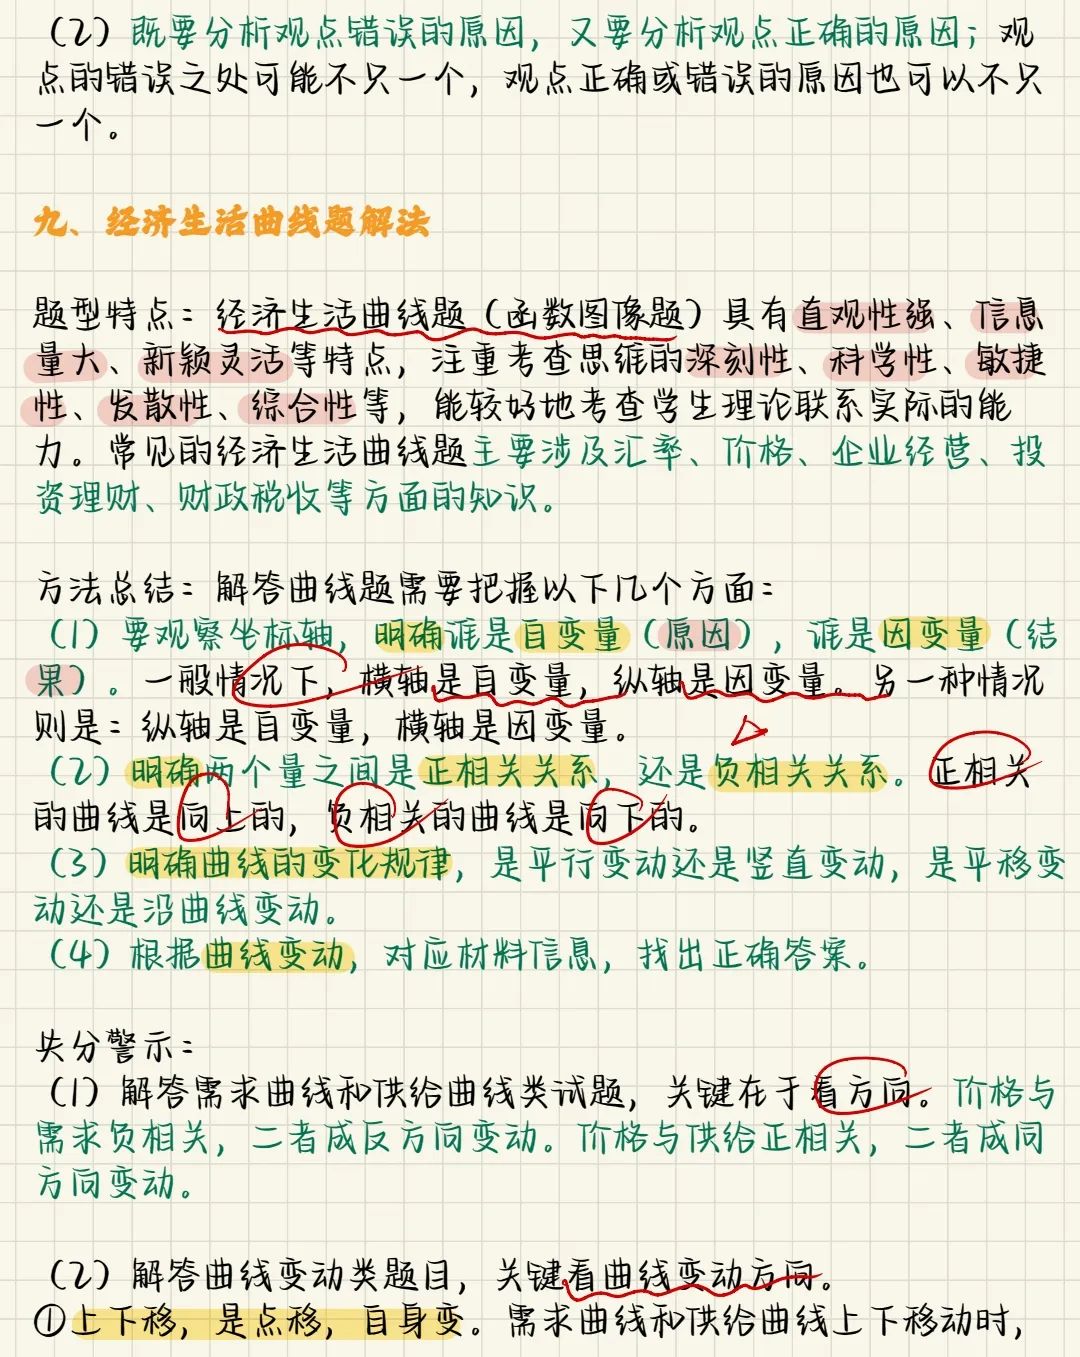 （2）既要分析观点错误的原因，又要分析观点正确的原因；观
点的错误之处可能不只一个，观点正确或错误的原因也可以不只
一个。
九、经济生活曲线题解法
题型特点：经济生活曲线题（函数图像题）具有直观性强、信息
量大、新颖灵活等特点，注重考查思维的深刻性、科学性、敏捷
性、发散性、综合性等，能较好地考查学生理论联系实际的能
力。常见的经济生活曲线题主要涉及汇率、价格、企业经营、投
资理财、财政税收等方面的知识。
方法总结：解答曲线题需要把握以下几个方面：
（1）要观察坐标轴，明确谁是自变量（原因），谁是因变量（结
果）。一般情况下，横轴是自变量，纵轴是因变量。另一种情况
则是：纵轴是自变量，横轴是因变量。
（2）明确两个量之间是正相关关系，还是负相关关系。正相关
的曲线是向上的，负相关的曲线是向下的。
（3）明确曲线的变化规律，是平行变动还是竖直变动，是平移变
动还是沿曲线变动。
（4）根据曲线变动，对应材料信息，找出正确答案。
失分警示：
（1）解答需求曲线和供给曲线类试题，关键在于看方向。价格与
需求负相关，二者成反方向变动。价格与供给正相关，二者成同
方向变动。
（2）解答曲线变动类题目，关键看曲线变动方向。
①上下移，是点移，自身变。需求曲线和供给曲线上下移动时，